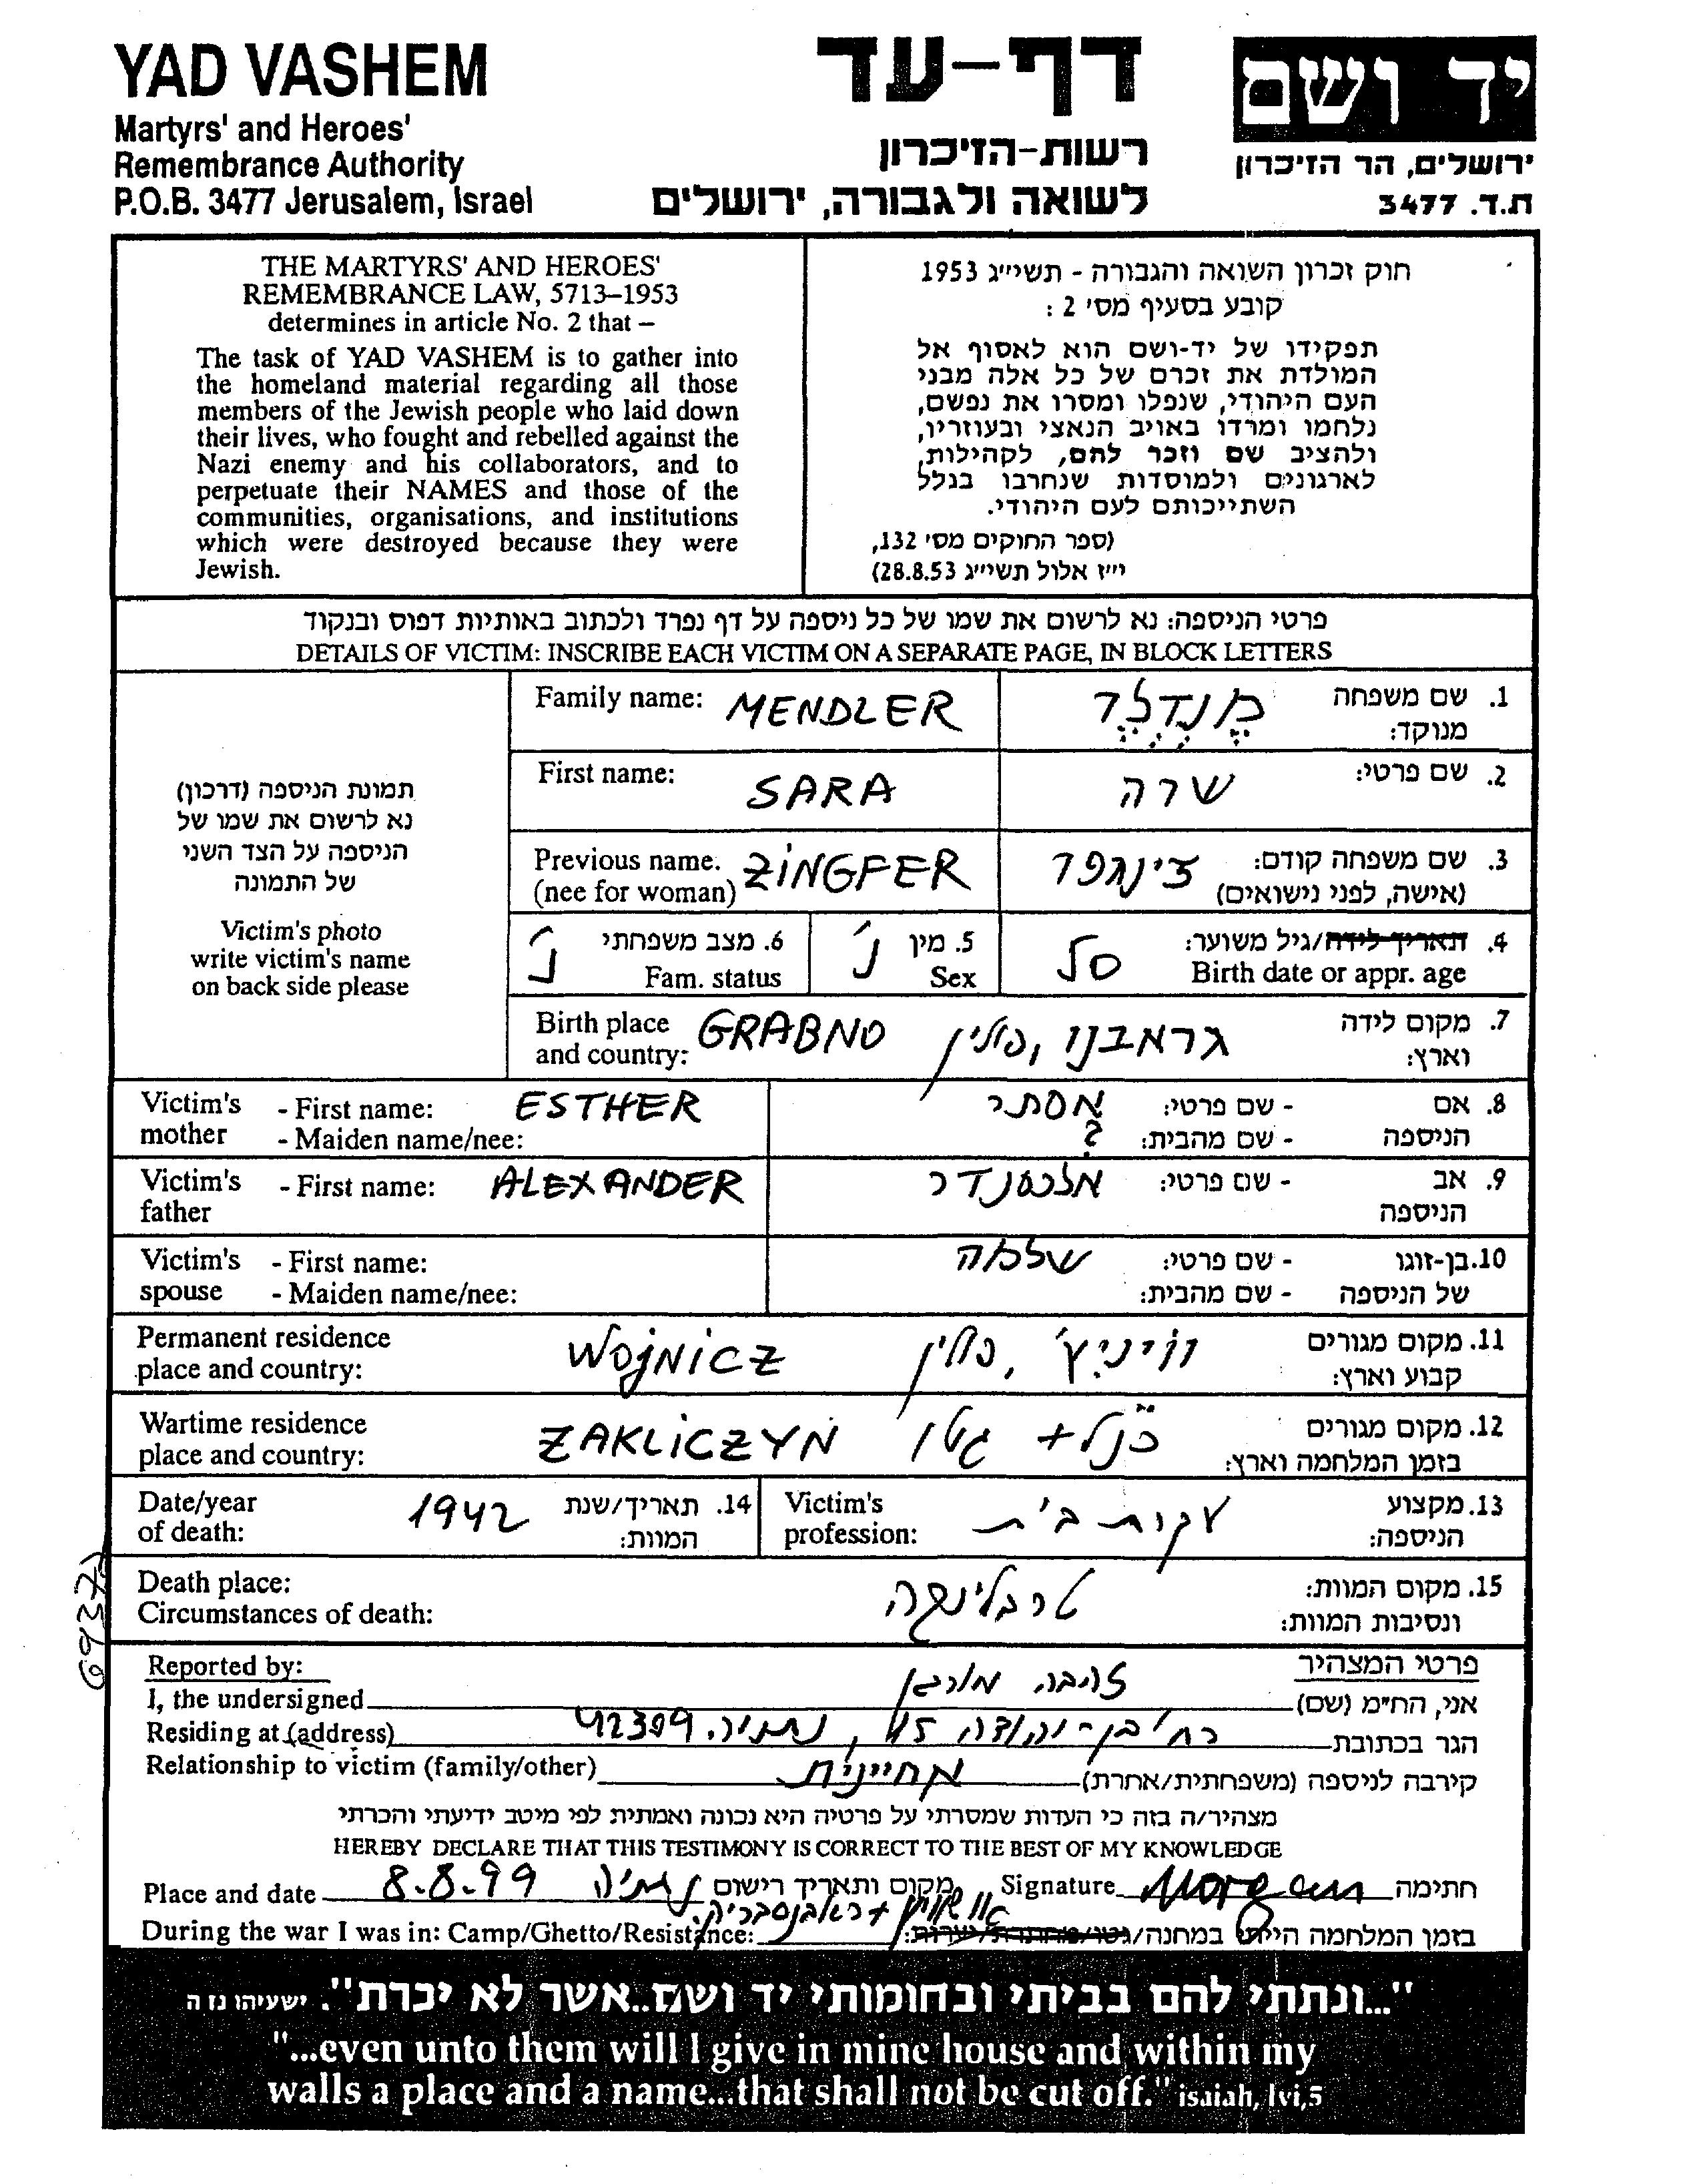 YAD VASHEM
Martyrs' and Heroes'
Remembrance Authority
P.O.B. 3477 Jerusalem, Israel
דף-עד
רשות-הזיכרון
לשואה ולגבורה, ירושלים
יד ושם
ירושלים, הר הזיכרון
ת.ד. 3477
THE MARTYRS' AND HEROES'
REMEMBRANCE LAW, 5713–1953
determines in article No. 2 that –
The task of YAD VASHEM is to gather into
the homeland material regarding all those
members of the Jewish people who laid down
their lives, who fought and rebelled against the
Nazi enemy and his collaborators, and to
perpetuate their NAMES and those of the
communities, organisations, and institutions
which were destroyed because they were
Jewish.
חוק זכרון השואה והגבורה - תשי״ג 1953
קובע בסעיף מס׳ 2 :
תפקידו של יד-ושם הוא לאסוף אל
המולדת את זכרם של כל אלה מבני
העם היהודי, שנפלו ומסרו את נפשם,
נלחמו ומרדו באויב הנאצי ובעוזריו,
ולהציב שם וזכר להם, לקהילות,
לארגונים ולמוסדות שנחרבו בגלל
השתייכותם לעם היהודי.
(ספר החוקים מס׳ 132,
י״ז אלול תשי״ג 28.8.53)
פרטי הניספה: נא לרשום את שמו של כל ניספה על דף נפרד ולכתוב באותיות דפוס ובנקוד
DETAILS OF VICTIM: INSCRIBE EACH VICTIM ON A SEPARATE PAGE, IN BLOCK LETTERS
תמונת הניספה (דרכון)
נא לרשום את שמו של
הניספה על הצד השני
של התמונה
Victim's photo
write victim's name
on back side please
Family name: MENDLER מֶנְדְלֶר 1. שם משפחה
מנוקד:
First name: SARA שרה 2. שם פרטי:
Previous name. ZINGFER צינגפר 3. שם משפחה קודם:
(nee for woman) (אישה, לפני נישואים)
נ׳ 6. מצב משפחתי נ׳ 5. מין 50 4. תאריך לידה/גיל משוער:
Fam. status Sex Birth date or appr. age
Birth place GRABNO גראבנו, פולין 7. מקום לידה
and country: וארץ:
Victim's - First name: ESTHER אסתר - שם פרטי: 8. אם
mother - Maiden name/nee: ? - שם מהבית: הניספה
Victim's - First name: ALEXANDER אלכסנדר - שם פרטי: 9. אב
father הניספה
Victim's - First name: שלמה - שם פרטי: 10. בן-זוגו
spouse - Maiden name/nee: - שם מהבית: של הניספה
Permanent residence WOJNICZ ווייניץ׳, פולין 11. מקום מגורים
place and country: קבוע וארץ:
Wartime residence ZAKLICZYN כנ״ל + גטו 12. מקום מגורים
place and country: בזמן המלחמה וארץ:
Date/year 1942 14. תאריך/שנת Victim's עקרת בית 13. מקצוע
of death: המוות: profession: הניספה:
Death place: טרבלינקה 15. מקום המוות:
Circumstances of death: ונסיבות המוות:
Reported by: פרטי המצהיר
I, the undersigned זהבה מורגן אני, הח״מ (שם)
Residing at (address) רח׳ בן-יהודה 45, נתניה, 42309 הגר בכתובת
Relationship to victim (family/other) אחיינית קירבה לניספה (משפחתית/אחרת)
מצהיר/ה בזה כי העדות שמסרתי על פרטיה היא נכונה ואמתית לפי מיטב ידיעתי והכרתי
HEREBY DECLARE THAT THIS TESTIMONY IS CORRECT TO THE BEST OF MY KNOWLEDGE
Place and date 8.8.99 נתניה מקום ותאריך רישום Signature Morgan חתימה
During the war I was in: Camp/Ghetto/Resistance: אושוויץ + ראבנסבריק בזמן המלחמה הייתי במחנה/גטו/מחתרת/יערות:
"...ונתתי להם בביתי ובחומותי יד ושם..אשר לא יכרת". ישעיהו נו ה
"...even unto them will I give in mine house and within my
walls a place and a name...that shall not be cut off." isaiah, lvi,5